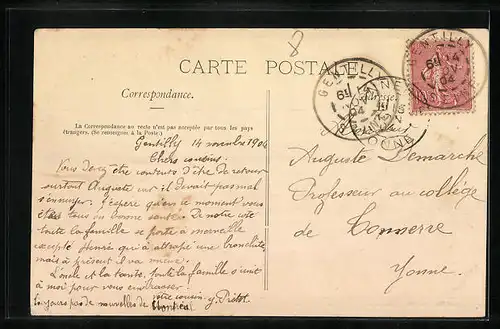 CARTE POSTALE
8
Correspondance.
La Correspondance au recto n'est pas acceptée par tous les pays
étrangers. (Se renseigner à la Poste.)
GENTILLY
SEINE
GENTILLY
SEINE
YONNE
Gentilly 14 novembre 1904
Chers cousins.
Vous devez être contents d'être de retour
surtout Auguste car il devait pas mal
s'ennuyer. J'espère qu'en ce moment vous
êtes tous en bonne santé. De notre côté
toute la famille se porte à merveille
excepté Henri qui a attrapé une bronchite
mais à présent il va mieux.
L'oncle et la tante, toute la famille s'unit
à moi pour vous embrasser.
votre cousin
toujours pas de nouvelles de
Monsieur
Auguste Demarche
Professeur au collège
de Tonnerre
Yonne.